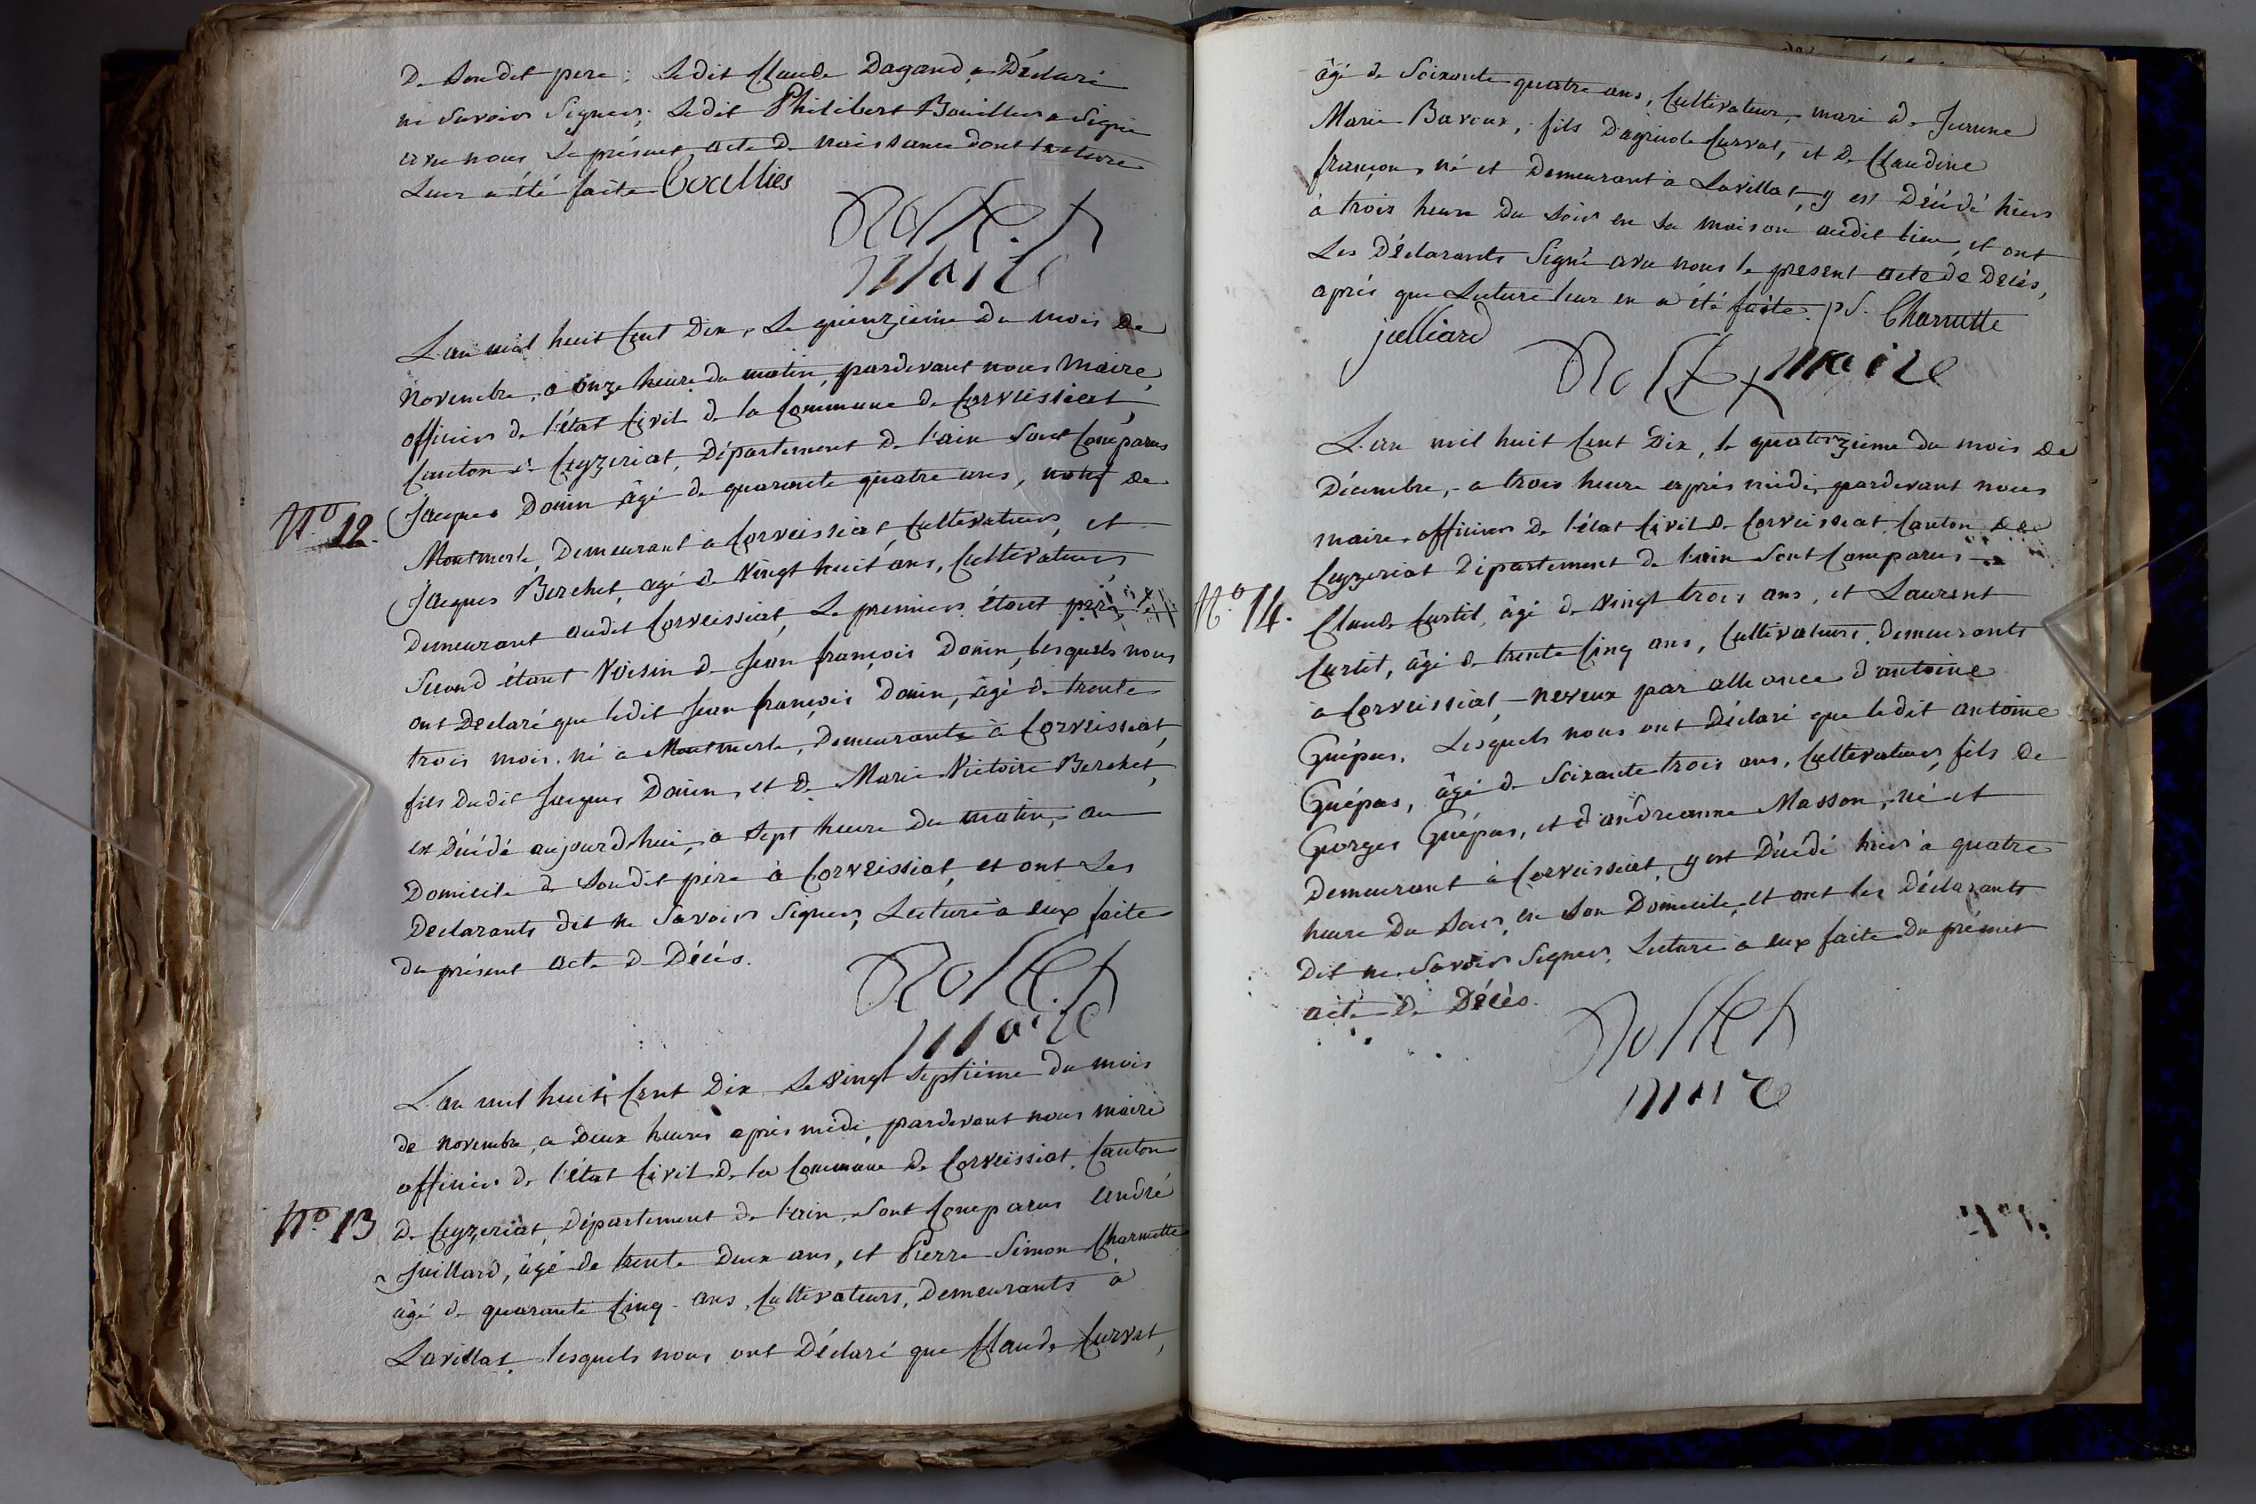 De Son dit pere; Ledit Claude Dagand, a Déclaré
ne Savoir Signer; Ledit Philibert Bouillier a Signé
avec nous Le présent acte de naissance dont lecture
Leur a été faite Bouillier
Rollet
maire
L'an mil huit Cent Dix, Le quinzieme Du mois de
Novembre, a onze heure du matin, pardevant nous Maire,
officier de l'état Civil de la Commune de Corveissiat,
Canton de Ceyzeriat, Département de l'ain Sont Comparus
Jacques Donin âgé de quarante quatre ans, natif de
No. 12.
Montmerle, Demeurant à Corveissiat, Cultivateur, et
Jacques Berchet, agé de Vingt huit ans, Cultivateur
Demeurant audit Corveissiat, Le premier étant père
Second étant Voisin de Jean françois Donin, Lesquels nous
ont Declaré que ledit Jean françois Donin, âgé de trente
trois mois, né a Montmerle, Demeurant à Corveissiat,
fils Dudit Jacques Donin, et De Marie Victoire Berchet,
est Décédé aujourd'hui, a Sept heure du matin, au
Domicile de Son dit père à Corveissiat, et ont Les
Declarants dit ne Savoir Signer, Lecture a eux faite
du présent acte de Décés.
Rollet
maire
L'an mil huit Cent Dix Le Vingt Septième du mois
de Novembre, a Deux heures après midi, pardevant nous maire
officier de l'état Civil de la Commune de Corveissiat, Canton
de Ceyzeriat, Département de l'ain, Sont Comparus André
No 13
Juillard, âgé de trente Deux ans, et Pierre Simon Charnutte
âgé de quarante Cinq ans, Cultivateurs, Demeurants à
Lavillat, lesquels nous ont Déclaré que Claude Curvat,
âgé de Soixante quatre ans, Cultivateur, mari de Jeanne
Marie Baveux, fils D'agricole Curvat, et De Claudine
françon, né et Demeurant à Lavillat, y est Décédé hier
à trois heure Du Soir en Sa maison audit lieu, et ont
Les Déclarants Signé avec nous le present acte de Décés,
après que Lecture leur en a été faite. p S. Charnutte
juilliard
Rollet maire
L'an mil huit Cent Dix, le quatorzieme du mois de
Décembre, a trois heure après midi, pardevant nous
maire officier De l'état Civil de Corveissiat Canton de
Ceyzeriat Département de l'ain Sont Comparus
No 14.
Claude Curtit, âgé de Vingt trois ans, et Laurent
Curtit, âgé de trente Cinq ans, Cultivateurs, Demeurants
à Corveissiat, neveux par alliance d'antoine
Guépas, Lesquels nous ont Déclaré que ledit antoine
Guépas, âgé de Soixante trois ans, Cultivateur, fils De
Georges Guépas, et d'andreanne Masson, né et
Demeurant à Corveissiat, y est Décédé hier à quatre
heure Du Soir, en Son Domicile, et ont les Déclarants
Dit ne Savoir Signer, Lecture a eux faite Du présent
acte De Décès.
Rollet
maire